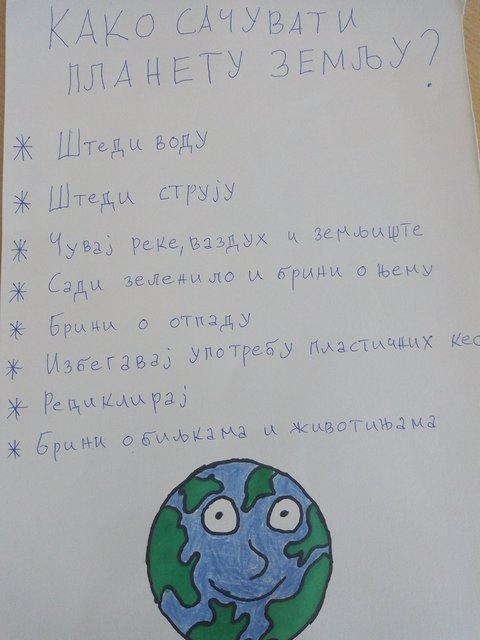 КАКО САЧУВАТИ
ПЛАНЕТУ ЗЕМЉУ?
* Штеди воду
* Штеди струју
* Чувај реке, ваздух и земљиште
* Сади зеленило и брини о њему
* Брини о отпаду
* Избегавај употребу пластичних кес
* Рециклирај
* Брини о биљкама и животињама